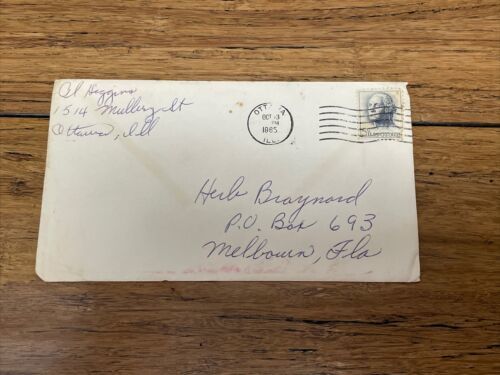 Al Higgins
1514 Mulberry St
Ottawa, Ill
OTTAWA
OCT 13
PM
1965
ILL.
Herb Braynard
P.O. Box 693
Melbourn, Fla